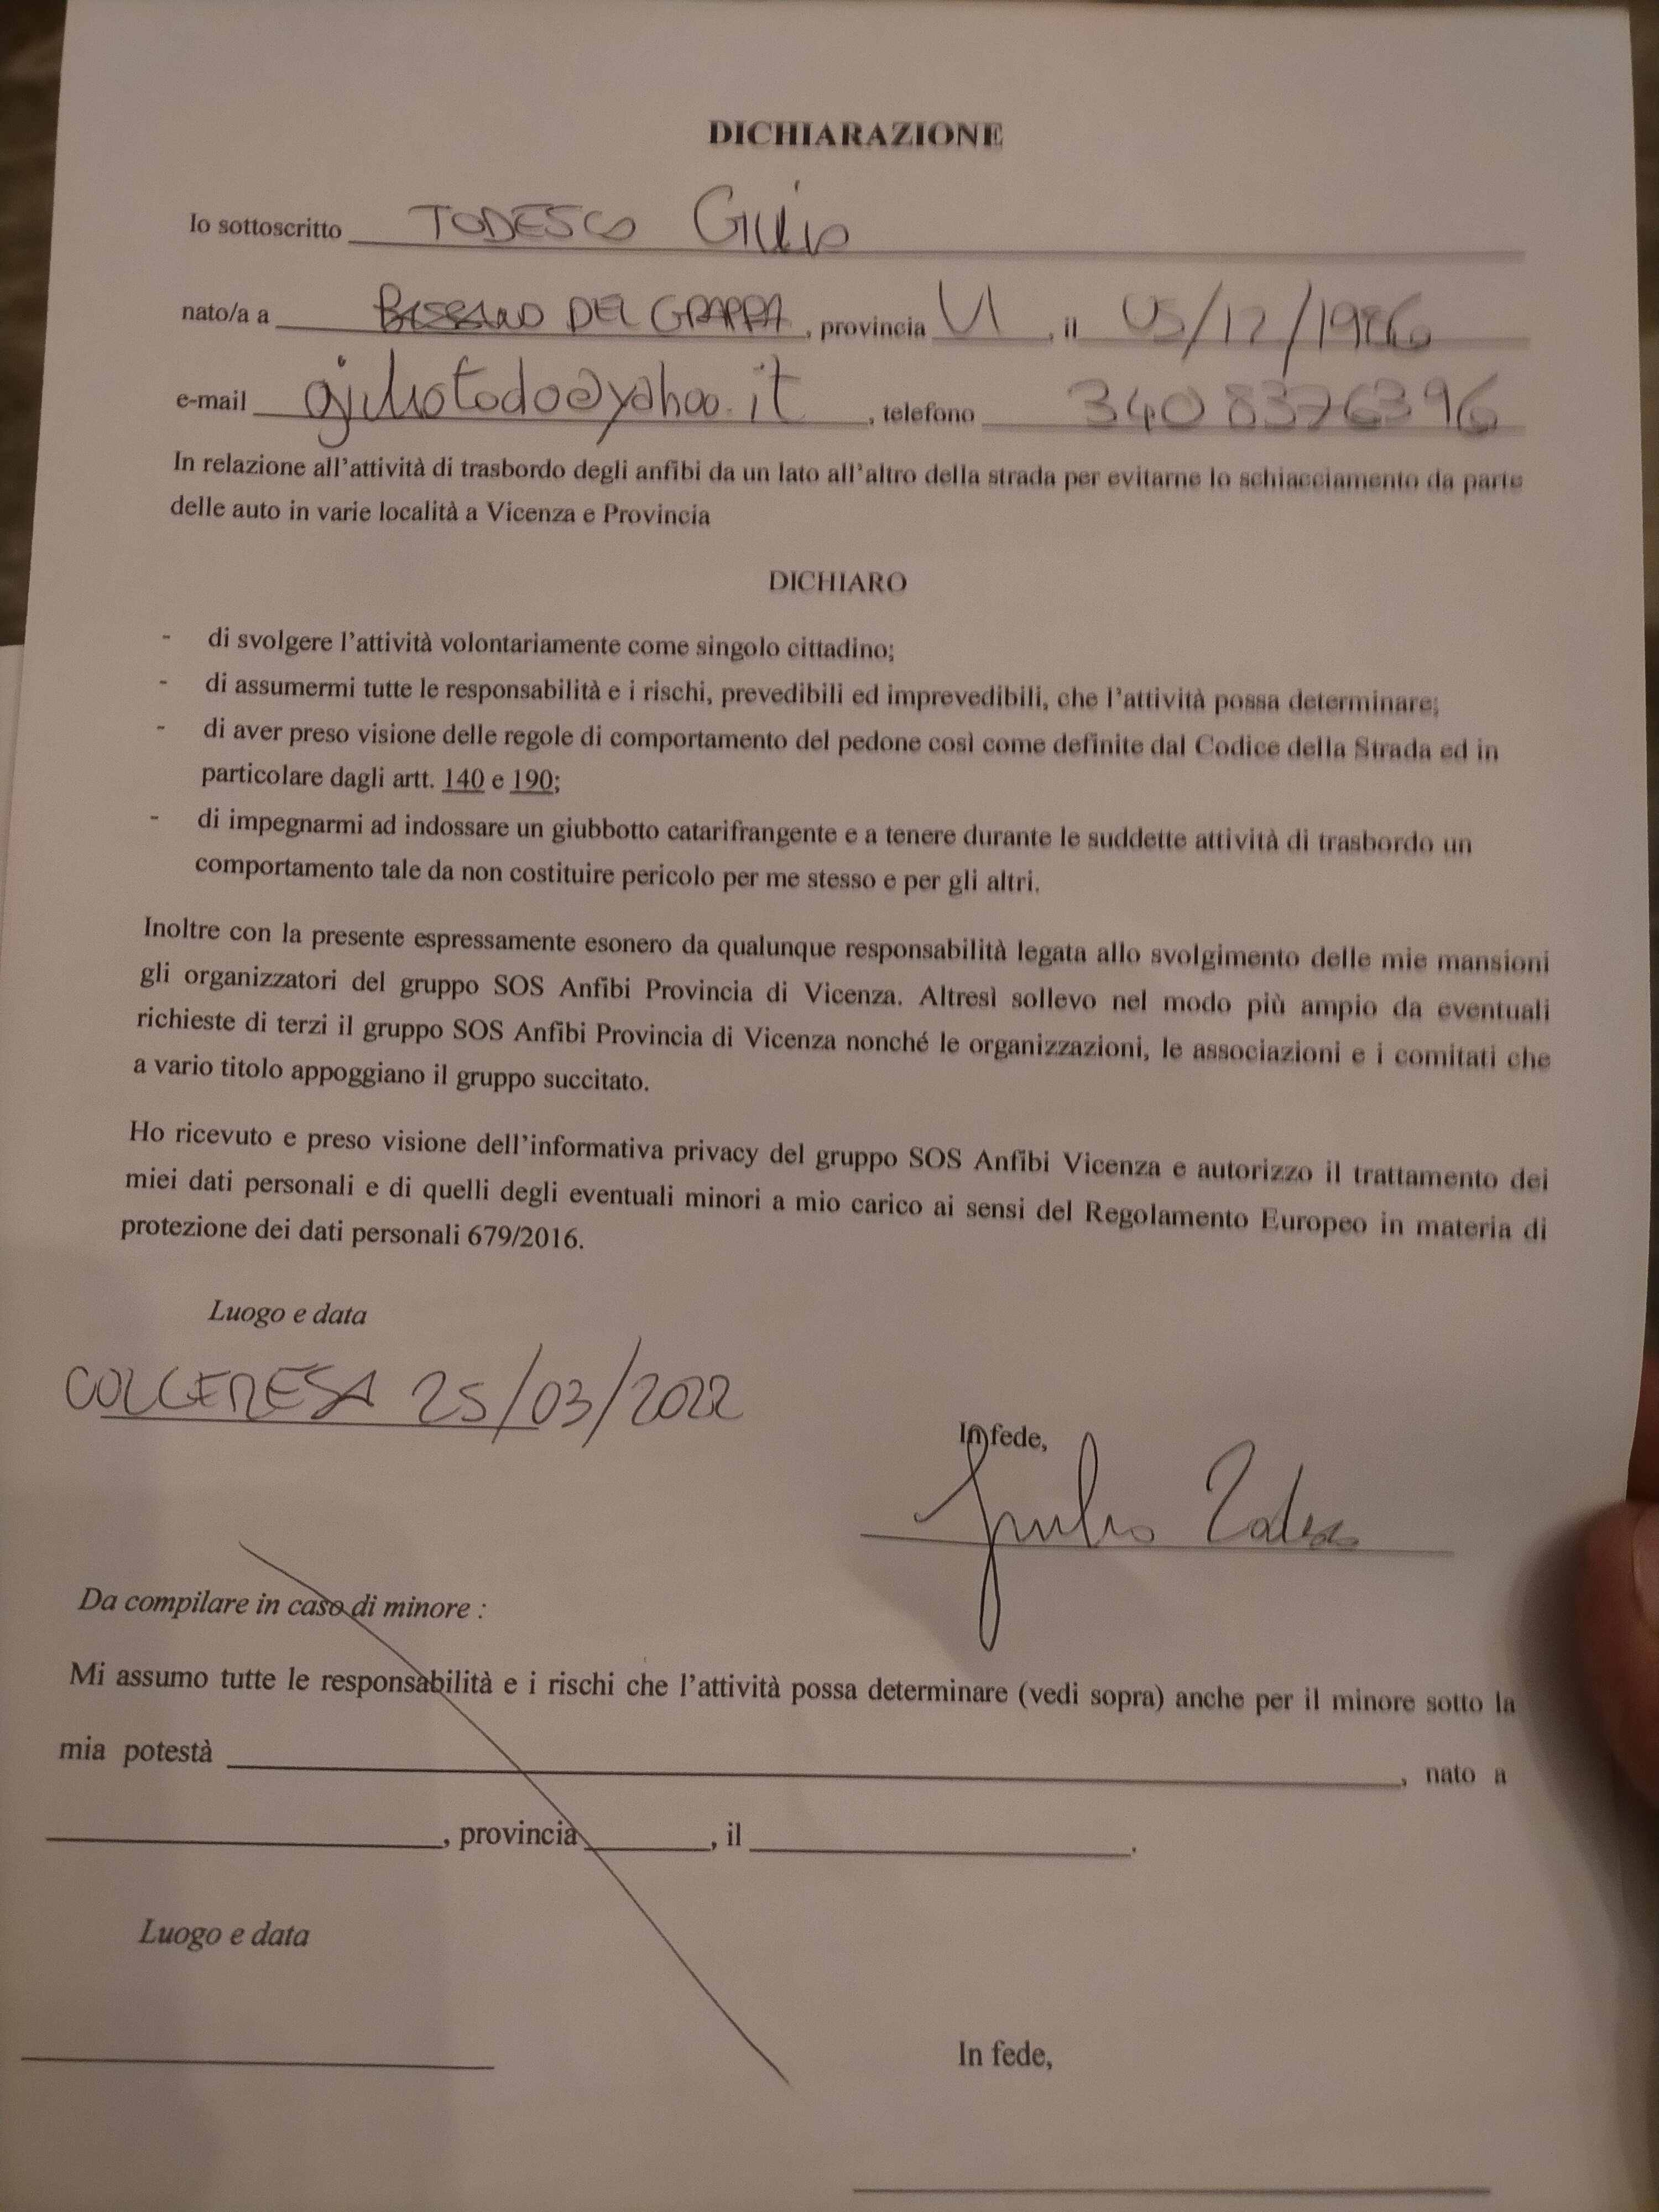 DICHIARAZIONE
Io sottoscritto TODESCO Giulio
nato/a a BASSANO DEL GRAPPA, provincia VI, il 05/12/1986
e-mail giuliotodo@yahoo.it, telefono 340 8376396
In relazione all'attività di trasbordo degli anfibi da un lato all'altro della strada per evitarne lo schiacciamento da parte
delle auto in varie località a Vicenza e Provincia
DICHIARO
- di svolgere l'attività volontariamente come singolo cittadino;
- di assumermi tutte le responsabilità e i rischi, prevedibili ed imprevedibili, che l'attività possa determinare;
- di aver preso visione delle regole di comportamento del pedone così come definite dal Codice della Strada ed in
particolare dagli artt. 140 e 190;
- di impegnarmi ad indossare un giubbotto catarifrangente e a tenere durante le suddette attività di trasbordo un
comportamento tale da non costituire pericolo per me stesso e per gli altri.
Inoltre con la presente espressamente esonero da qualunque responsabilità legata allo svolgimento delle mie mansioni
gli organizzatori del gruppo SOS Anfibi Provincia di Vicenza. Altresì sollevo nel modo più ampio da eventuali
richieste di terzi il gruppo SOS Anfibi Provincia di Vicenza nonché le organizzazioni, le associazioni e i comitati che
a vario titolo appoggiano il gruppo succitato.
Ho ricevuto e preso visione dell'informativa privacy del gruppo SOS Anfibi Vicenza e autorizzo il trattamento dei
miei dati personali e di quelli degli eventuali minori a mio carico ai sensi del Regolamento Europeo in materia di
protezione dei dati personali 679/2016.
Luogo e data
COLCERESA 25/03/2022
In fede,
Giulio Todesco
Da compilare in caso di minore :
Mi assumo tutte le responsabilità e i rischi che l'attività possa determinare (vedi sopra) anche per il minore sotto la
mia potestà , nato a
, provincia , il .
Luogo e data
In fede,